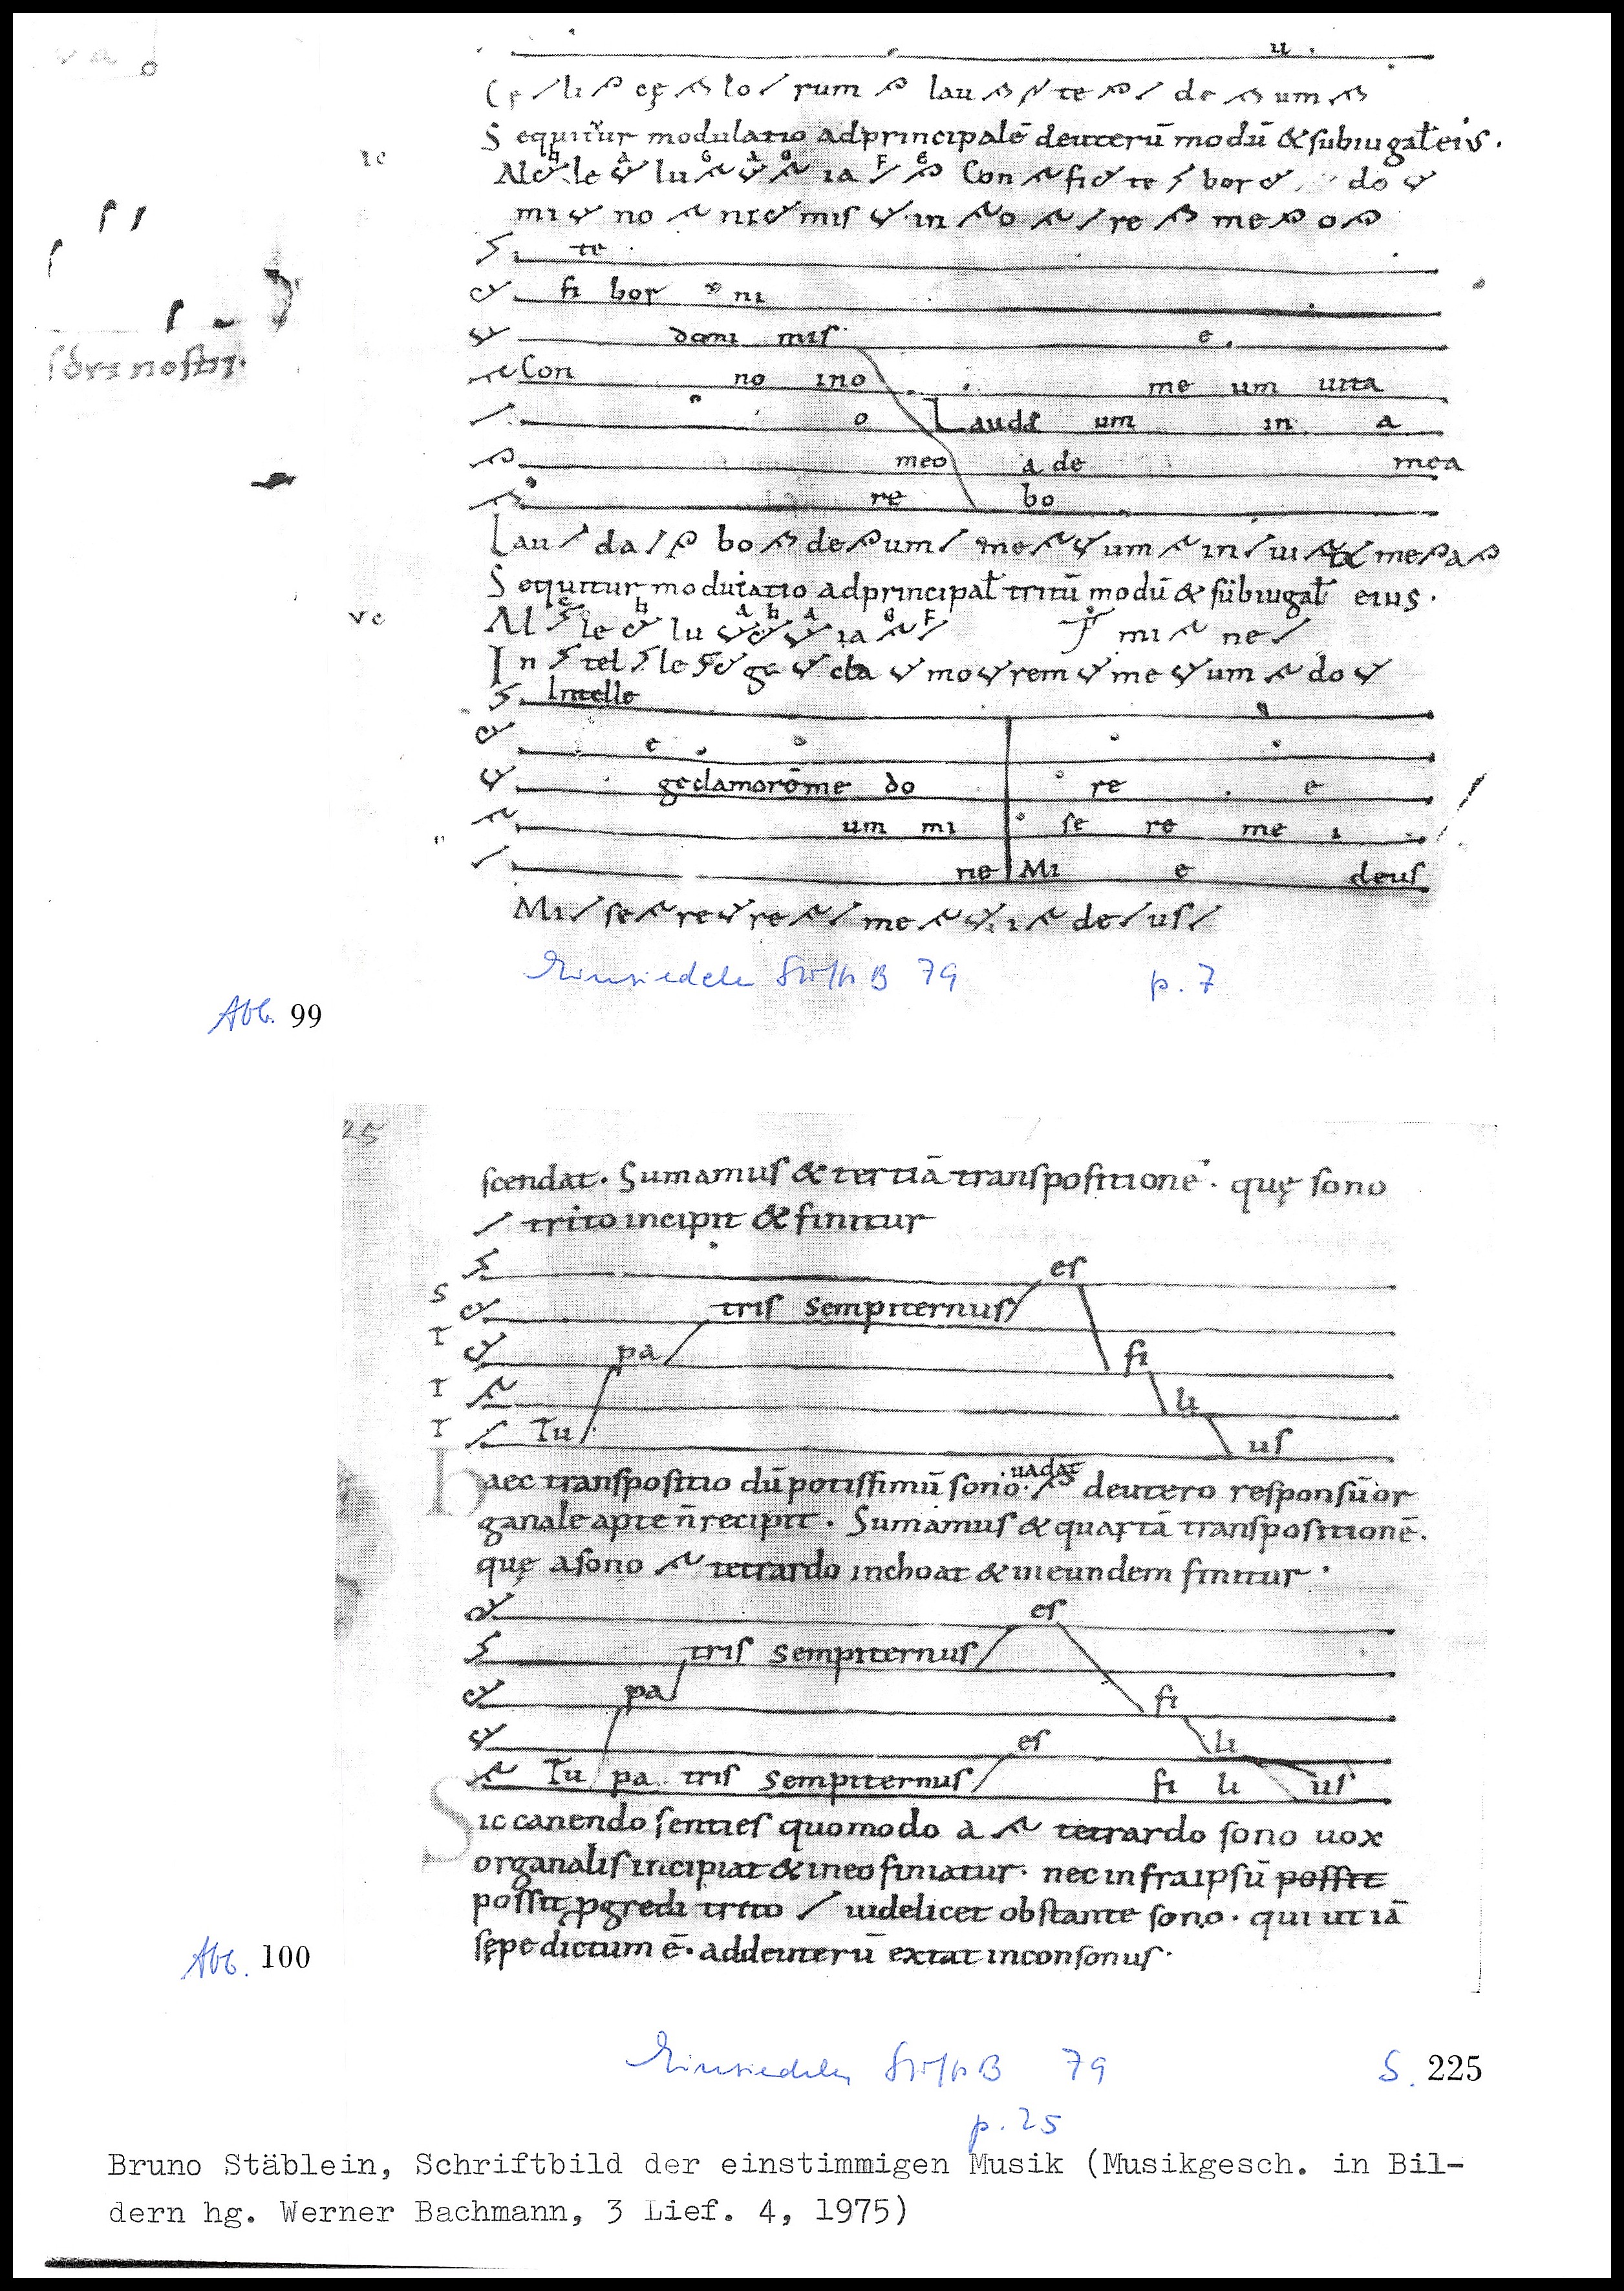 u .
lo rum lau te de um
S equit̄ur modulatio adprincipalē deuterū modū & subiugal̄ eis.
Al le lu ia Con fi te bor do
mi no ni mis in o re me o
te
fi bor ni
domi mis e
Con no ino me um uita
o Laudā um in a
meo a de mea
re bo
Lau da bo de um me um in ui me a
S equitur modulatio adprincipal̄ tritū modū & subiugal̄ eius.
Al le lu ia mi ne
I n tel le ge cla mo rem me um do
Intelle
c
geclamorēme do re e
um mi se re me i
ne Mi e deus
Mi se re re me i de us
Einsiedeln StiftsB 79 p. 7
Abb. 99
25
scendat. Sumamus & tertiā transpositionē. quę sono
trito incipit & finitur
es
S tris sempiternus
T pa fi
T li
T Tu us
uadat
Haec transpositio dū potissimū sono deutero responsū or
ganale apte n̄ recipit. Sumamus & quartā transpositionē.
quę asono tetrardo inchoat & ineundem finitur.
es
tris sempiternus
pa fi
es li
Tu pa tris sempiternus fi li us
Sic canendo senties quomodo a tetrardo sono uox
organalis incipiat & in eo finiatur. nec infra ipsū possit
possit p̱gredi trito uidelicet obstante sono. qui ut iā
sępe dictum ē. ad deuterū extat inconsonus.
Abb. 100
Einsiedeln StiftsB 79 S. 225
p. 25
Bruno Stäblein, Schriftbild der einstimmigen Musik (Musikgesch. in Bil-
dern hg. Werner Bachmann, 3 Lief. 4, 1975)